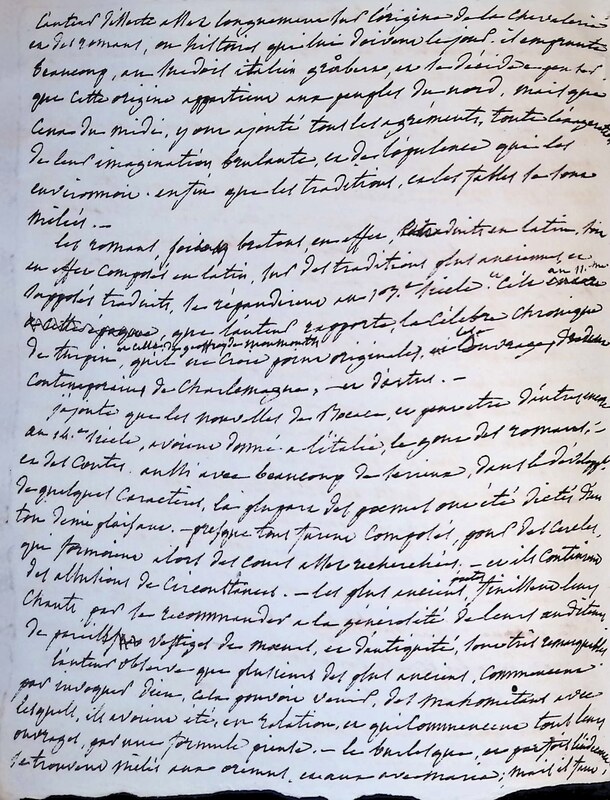 L'auteur disserte assez longuement sur l'origine de la chevalerie
et des romans, ou histoires qui lui doivent le jour. il emprunte
beaucoup, au suedois italien gråberg, et se décide a penser
que cette origine appartient aux peuples du nord. mais que
ceux du midi, y ont ajouté tous les agréments, toute
de leur imagination brulante, et de l'opulence qui les
environnoit. enfin que les traditions, et les fables se sont
mêlés. —
les romans bretons, en effet, traduits en latin,
en effet composés en latin, sur des traditions plus anciennes, et
supposés traduits, se repandirent au siècle. au 11. me
que l'auteur rapporte la célèbre chronique
de turpin, et celle de geoffroy de monmouth qu'il ne croit point originales, ouvrages
contemporains de Charlemagne, — et d'artus. —
j'ajoute que les nouvelles de Bocace, et peut etre d'autres encore
au 14.me siècle, avoient donné a l'italie, le gout des romans, —
et des contes. aussi avec beaucoup de serieux, dans le
de quelques caracteres, la plupart des poemes ont été dictés d'un
ton demi plaisant. — presque tous furent composés, pour des cercles,
qui formoient alors des cours assez recherchées, — et ils contiennent
des allusions de circonstances. — les plus anciens poetes, finissent leurs
chants par se recommander a la générosité de leurs auditeurs.
de pareils vestiges de moeurs, et d'antiquité, sont très remarquables
l'auteur observe que plusieurs des plus anciens, commencent
par invoquer dieu, cela pouvoit venir, des mahometans avec
lesquels, ils avoient été, en relation, et qui commencent tous leurs
ouvrages, par une formule pieuse. — le burlesque, et par fois l'indécence
se trouvent mêlés aux oremus, et aux ave maria; mais il faut